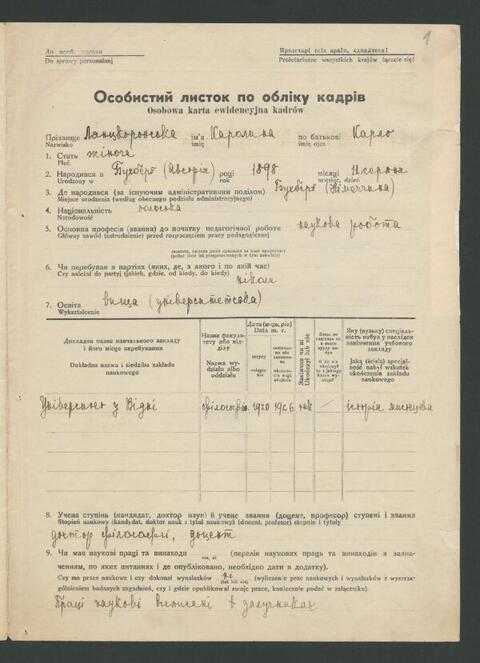 До особ. справи
Do sprawy personalnej
Пролетарі всіх країн, єднайтеся!
Proletariusze wszystkich krajów łączcie się!
1
Особистий листок по обліку кадрів
Osobowa karta ewidencyjna kadrów
Прізвище Лянцкоронська ім'я Кароліна по батькові Карло
Nazwisko imię imię ojca
1. Стать жіноча
Płeć
2. Народився в Бухберґ (Австрія) році 1898 місяці 11 серпня
Urodzony w rok miesiąc, dzień
3. Де народався (за існуючим адміністративним поділом) Бухберґ (Німеччина)
Miejsce urodzenia (według obecnego podziału administracyjnego)
4. Національність польська
Narodowość
5. Основна професія (звання) до початку педагогічної роботи наукова робота
Główny zawód (zatrudnienie) przed rozpoczęciem pracy pedagogicznej
6. Чи перебував в партіях (яких, де, з якого і по якій час)
Czy należał do partyj (jakich, gdzie, od kiedy, do kiedy) ніколи
7. Освіта вища (університетська)
Wykształcenie
Докладна назва навчального закладу і його місце перебування
Dokładna nazwa i siedziba zakładu naukowego
Назва факультету або відділу
Nazwa wydziału albo oddziału
Дата (м-ця, рік)
Data m. r.
вступу
Закінчив чи ні
Ukończył lub nie
Яку (вузьку) спеціальність набув у наслідок закінчення учбового закладу
Jaką (ścisłą) specjalność nabył wskutek ukończenia zakładu naukowego
Університет у Відні філософія 1920 1926 так — історія мистецтва
8. Учена ступінь (кандидат, доктор наук) й учене звання (доцент, професор) ступені і звання
Stopień naukowy (kandydat, doktor nauk i tytuł naukowy) (docent, profesor) stopnie i tytuły
доктор філософії, доцент
9. Чи має наукові праці та винаходи так, ні (перелік наукових праць та винаходів з зазначенням, по яких питаннях і де опубліковано, необхідно дати в додатку).
Czy ma prace naukowe i czy dokonał wynalazków ні (wyliczenie prac naukowych i wynalazków z wyszczególnieniem badanych zagadnień, czy i gdzie opublikował swoje prace, konieczne podać w załączniku).
Праці наукові виписані в залучниках